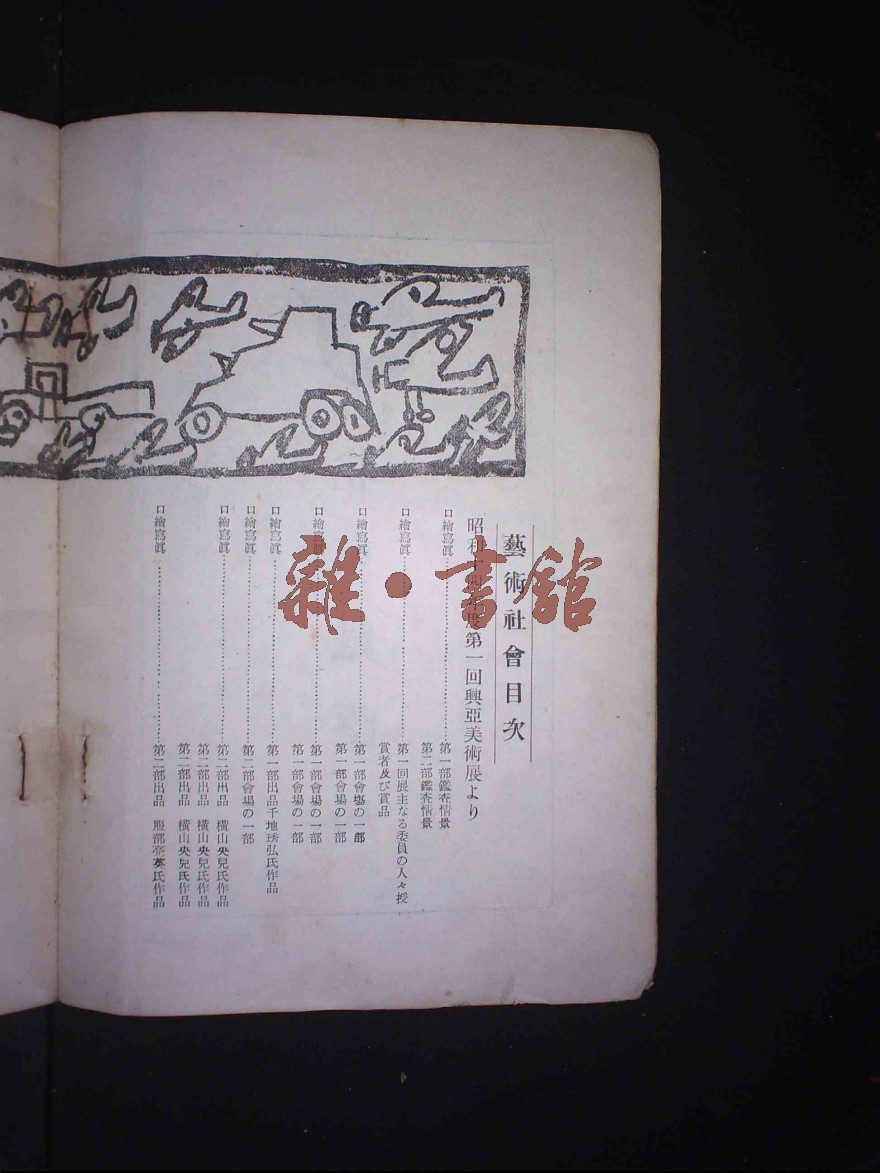 藝術社會目次
昭和十四年度第一回興亞美術展より
口繪寫眞…………第一部鑑査情景
第二部鑑査情景
口繪寫眞…………第一回展主なる委員の人々授
賞者及び賞品
口繪寫眞…………第一部會場の一部
第一部會場の一部
口繪寫眞…………第一部會場の一部
第一部會場の一部
口繪寫眞…………第一部出品千地琇弘氏作品
口繪寫眞…………第二部會場の一部
口繪寫眞…………第二部出品 橫山央兒氏作品
第二部出品 橫山央兒氏作品
第二部出品 橫山央兒氏作品
口繪寫眞…………第二部出品 服部 氏作品
雜·書舘